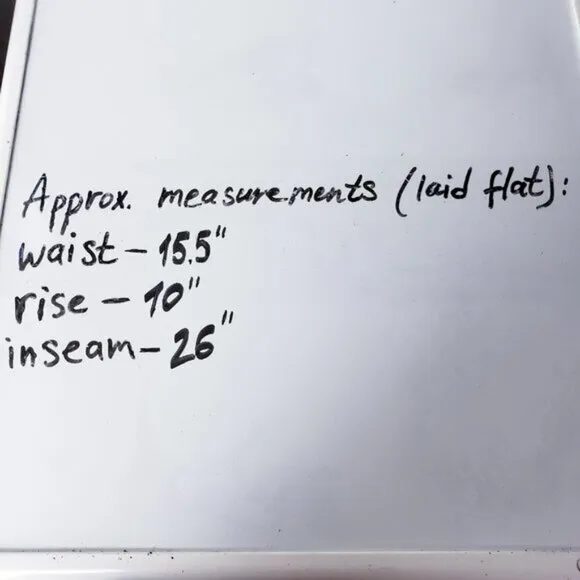 Approx. measurements (laid flat):
waist - 15.5"
rise - 10"
inseam - 26"